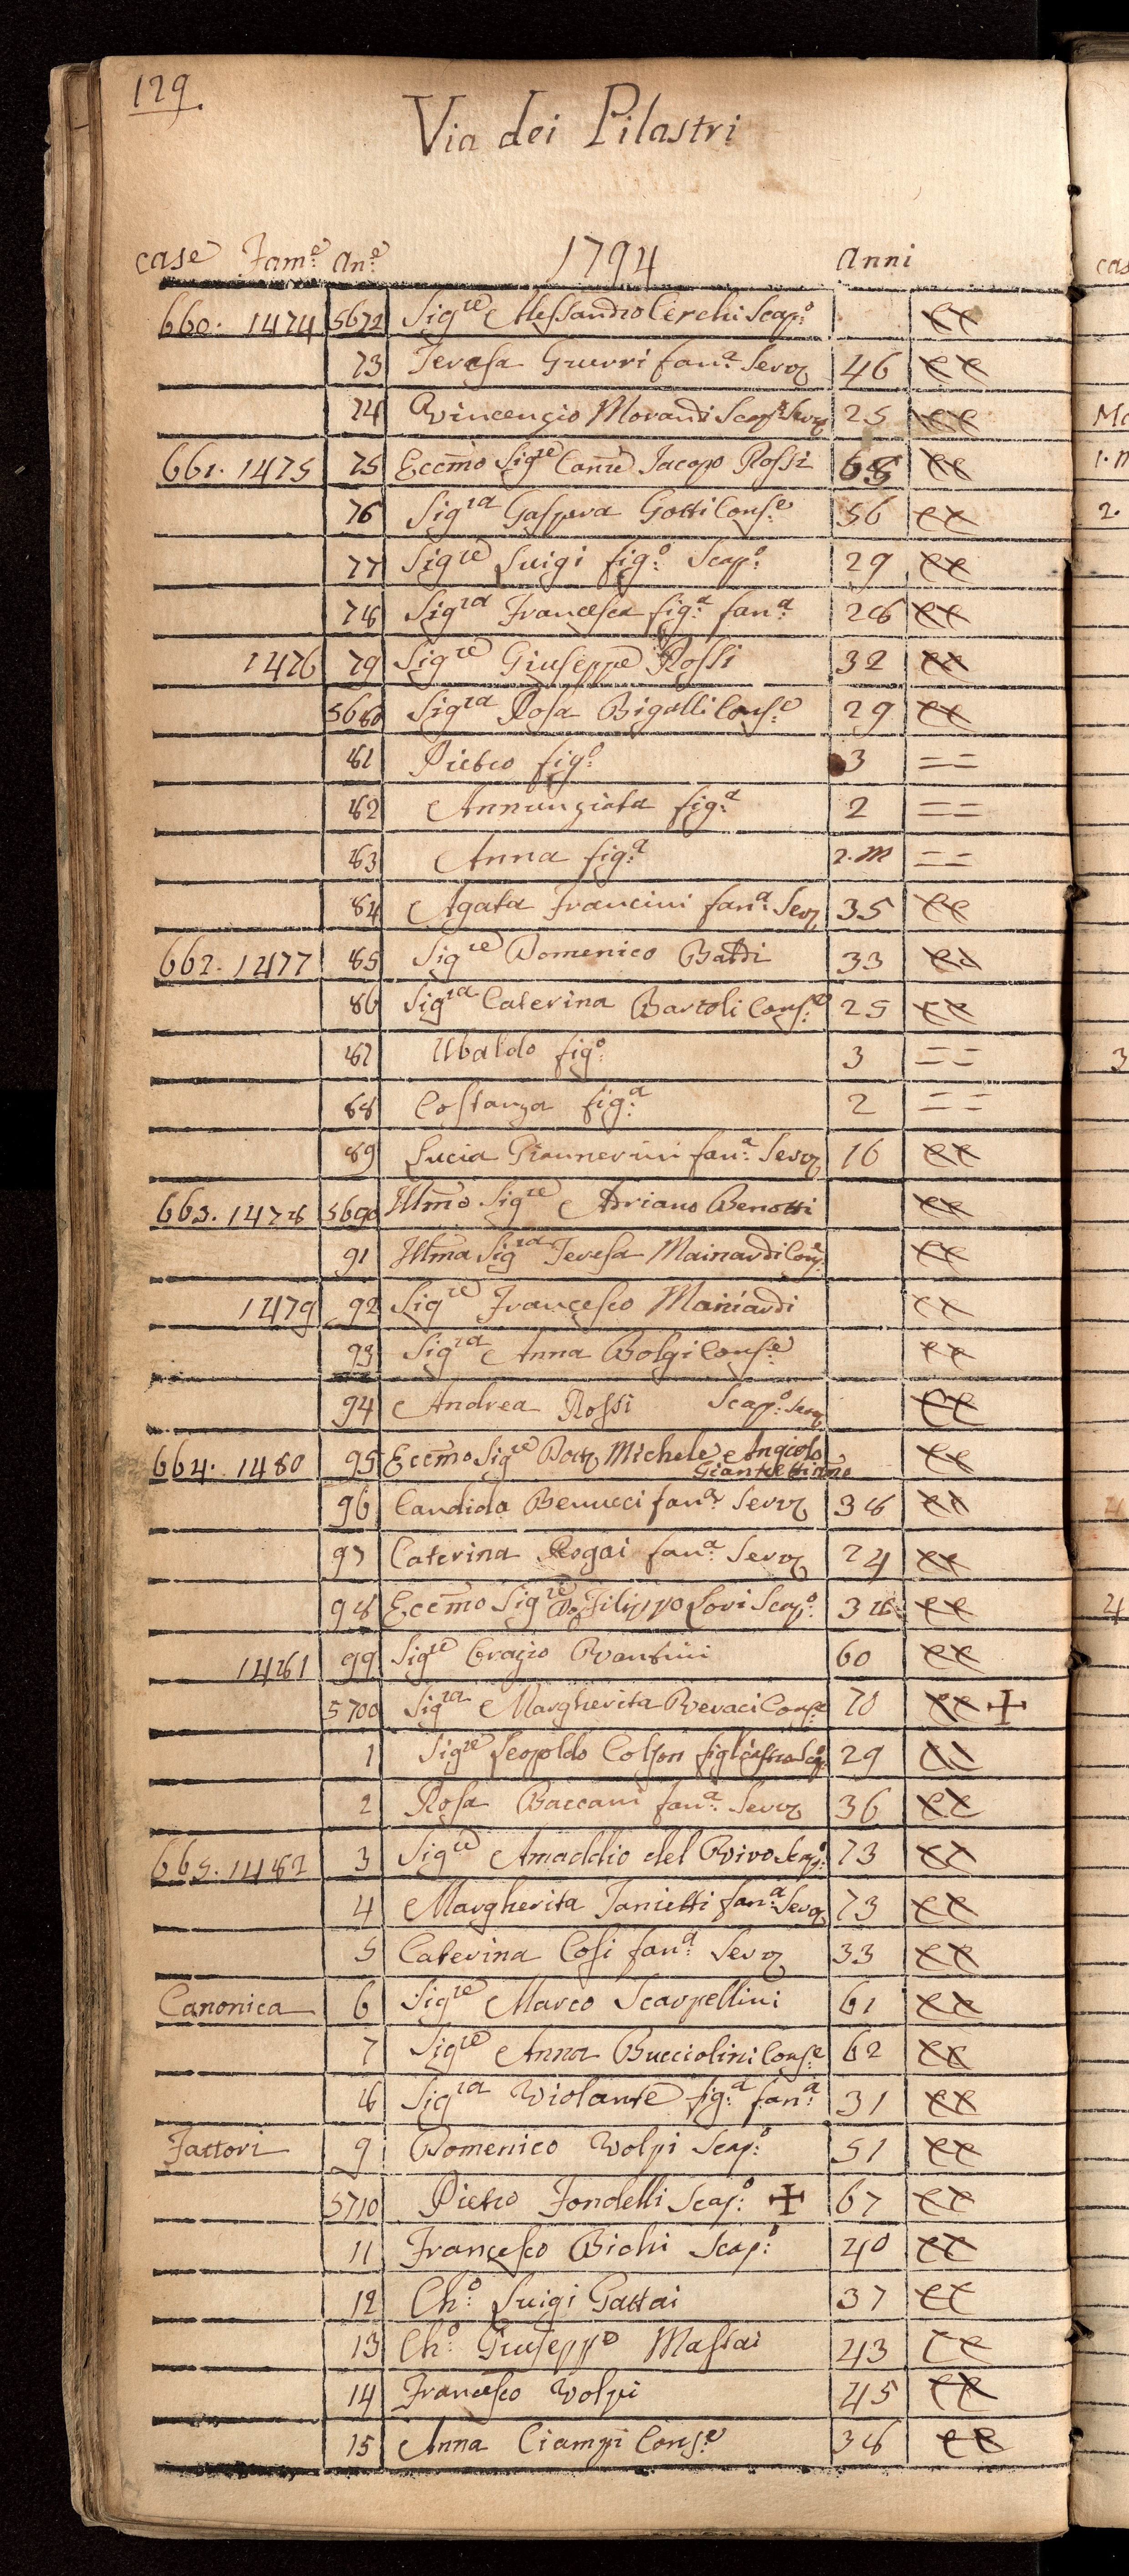 129.
Via dei Pilastri
case Fam:e An:e 1794 Anni
660. 1474 5672 Sigre Alessandro Cerchi Scap:o
73 Teresa Guerri fan:a Serv 46
74 Vincenzio Morandi Scap:o Serv 25
661. 1475 75 Eccmo Sigre Canre Jacopo Rossi 68
76 Sigra Gaspera Gotti Cons:e 56
77 Sigre Luigi fig:o Scap:o 29
78 Sigra Francesca fig:a fan:a 28
1476 79 Sigre Giuseppe Rossi 32
5680 Sigra Rosa Bigalli Cons:e 29
81 Pietro fig:o 3 = =
82 Annunziata fig:a 2 = =
83 Anna fig:a 2. m = =
84 Agata Francini fan:a Serv 35
662. 1477 85 Sigre Domenico Baldi 33
86 Sigra Caterina Bartoli Cons:e 25
87 Ubaldo fig:o 3 = =
88 Costanza fig:a 2 = =
89 Lucia Giannerini fan:a Serv 16
663. 1478 5690 Illmo Sigre Adriano Benotti
91 Illma Sigra Teresa Mainardi Con:e
1479 92 Sigre Francesco Mainardi
93 Sigra Anna Bolgi Cons:e
94 Andrea Rossi Scap:o Serv
664. 1480 95 Eccmo Sigre Dott Michele Angiolo
96 Candida Benucci fan:a Serv 38
97 Caterina Rogai fan:a Serv 24
98 Eccmo Sigre Do Filippo Lori Scap:o 38
1481 99 Sigre Orazio Vantini 60
5700 Sigra Margherita Veraci Cons:e 70 ✝
1 Sigre Leopoldo Colson figliastro Scap:o 29
2 Rosa Baccani fan:a Serv 36
665. 1482 3 Sigre Amaddio del Vivo Scap:o 73
4 Margherita Janietti fan:a Serv 73
5 Caterina Cosi fan:a Serv 33
Canonica 6 Sigre Marco Scarpellini 61
7 Sigre Anna Bucciolini Cons:e 62
8 Sigra Violante fig:a fan:a 31
Fattori 9 Domenico Volpi Scap:o 51
5710 Pietro Fondelli Scap:o ✝ 67
11 Francesco Bichi Scap:o 40
12 Ch:o Luigi Gattai 37
13 Ch:o Giuseppe Massai 43
14 Francesco Volpi 45
15 Anna Ciampi Cons:e 38